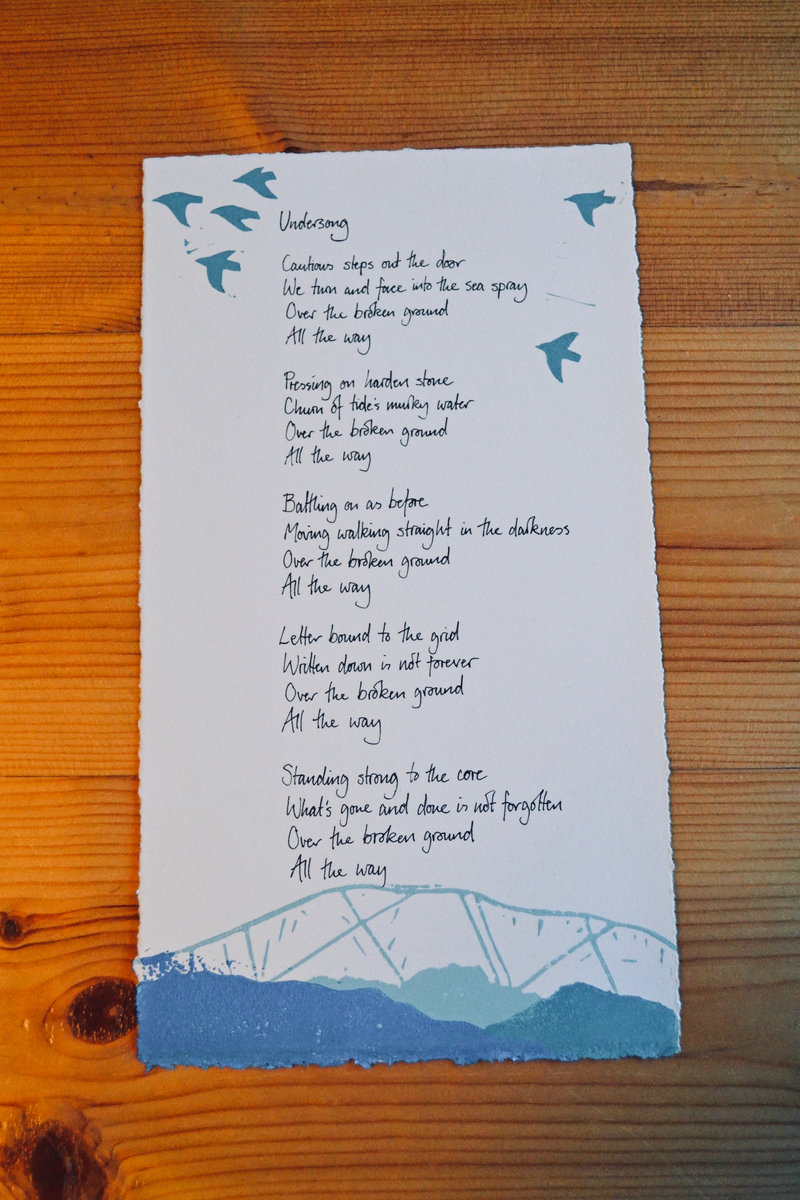 Undersong
Cautious steps out the door
We turn and face into the sea spray
Over the broken ground
All the way
Pressing on harden stone
Churn of tide's murky water
Over the broken ground
All the way
Battling on as before
Moving walking straight in the darkness
Over the broken ground
All the way
Letter bound to the grid
Written down is not forever
Over the broken ground
All the way
Standing strong to the core
What's gone and done is not forgotten
Over the broken ground
All the way